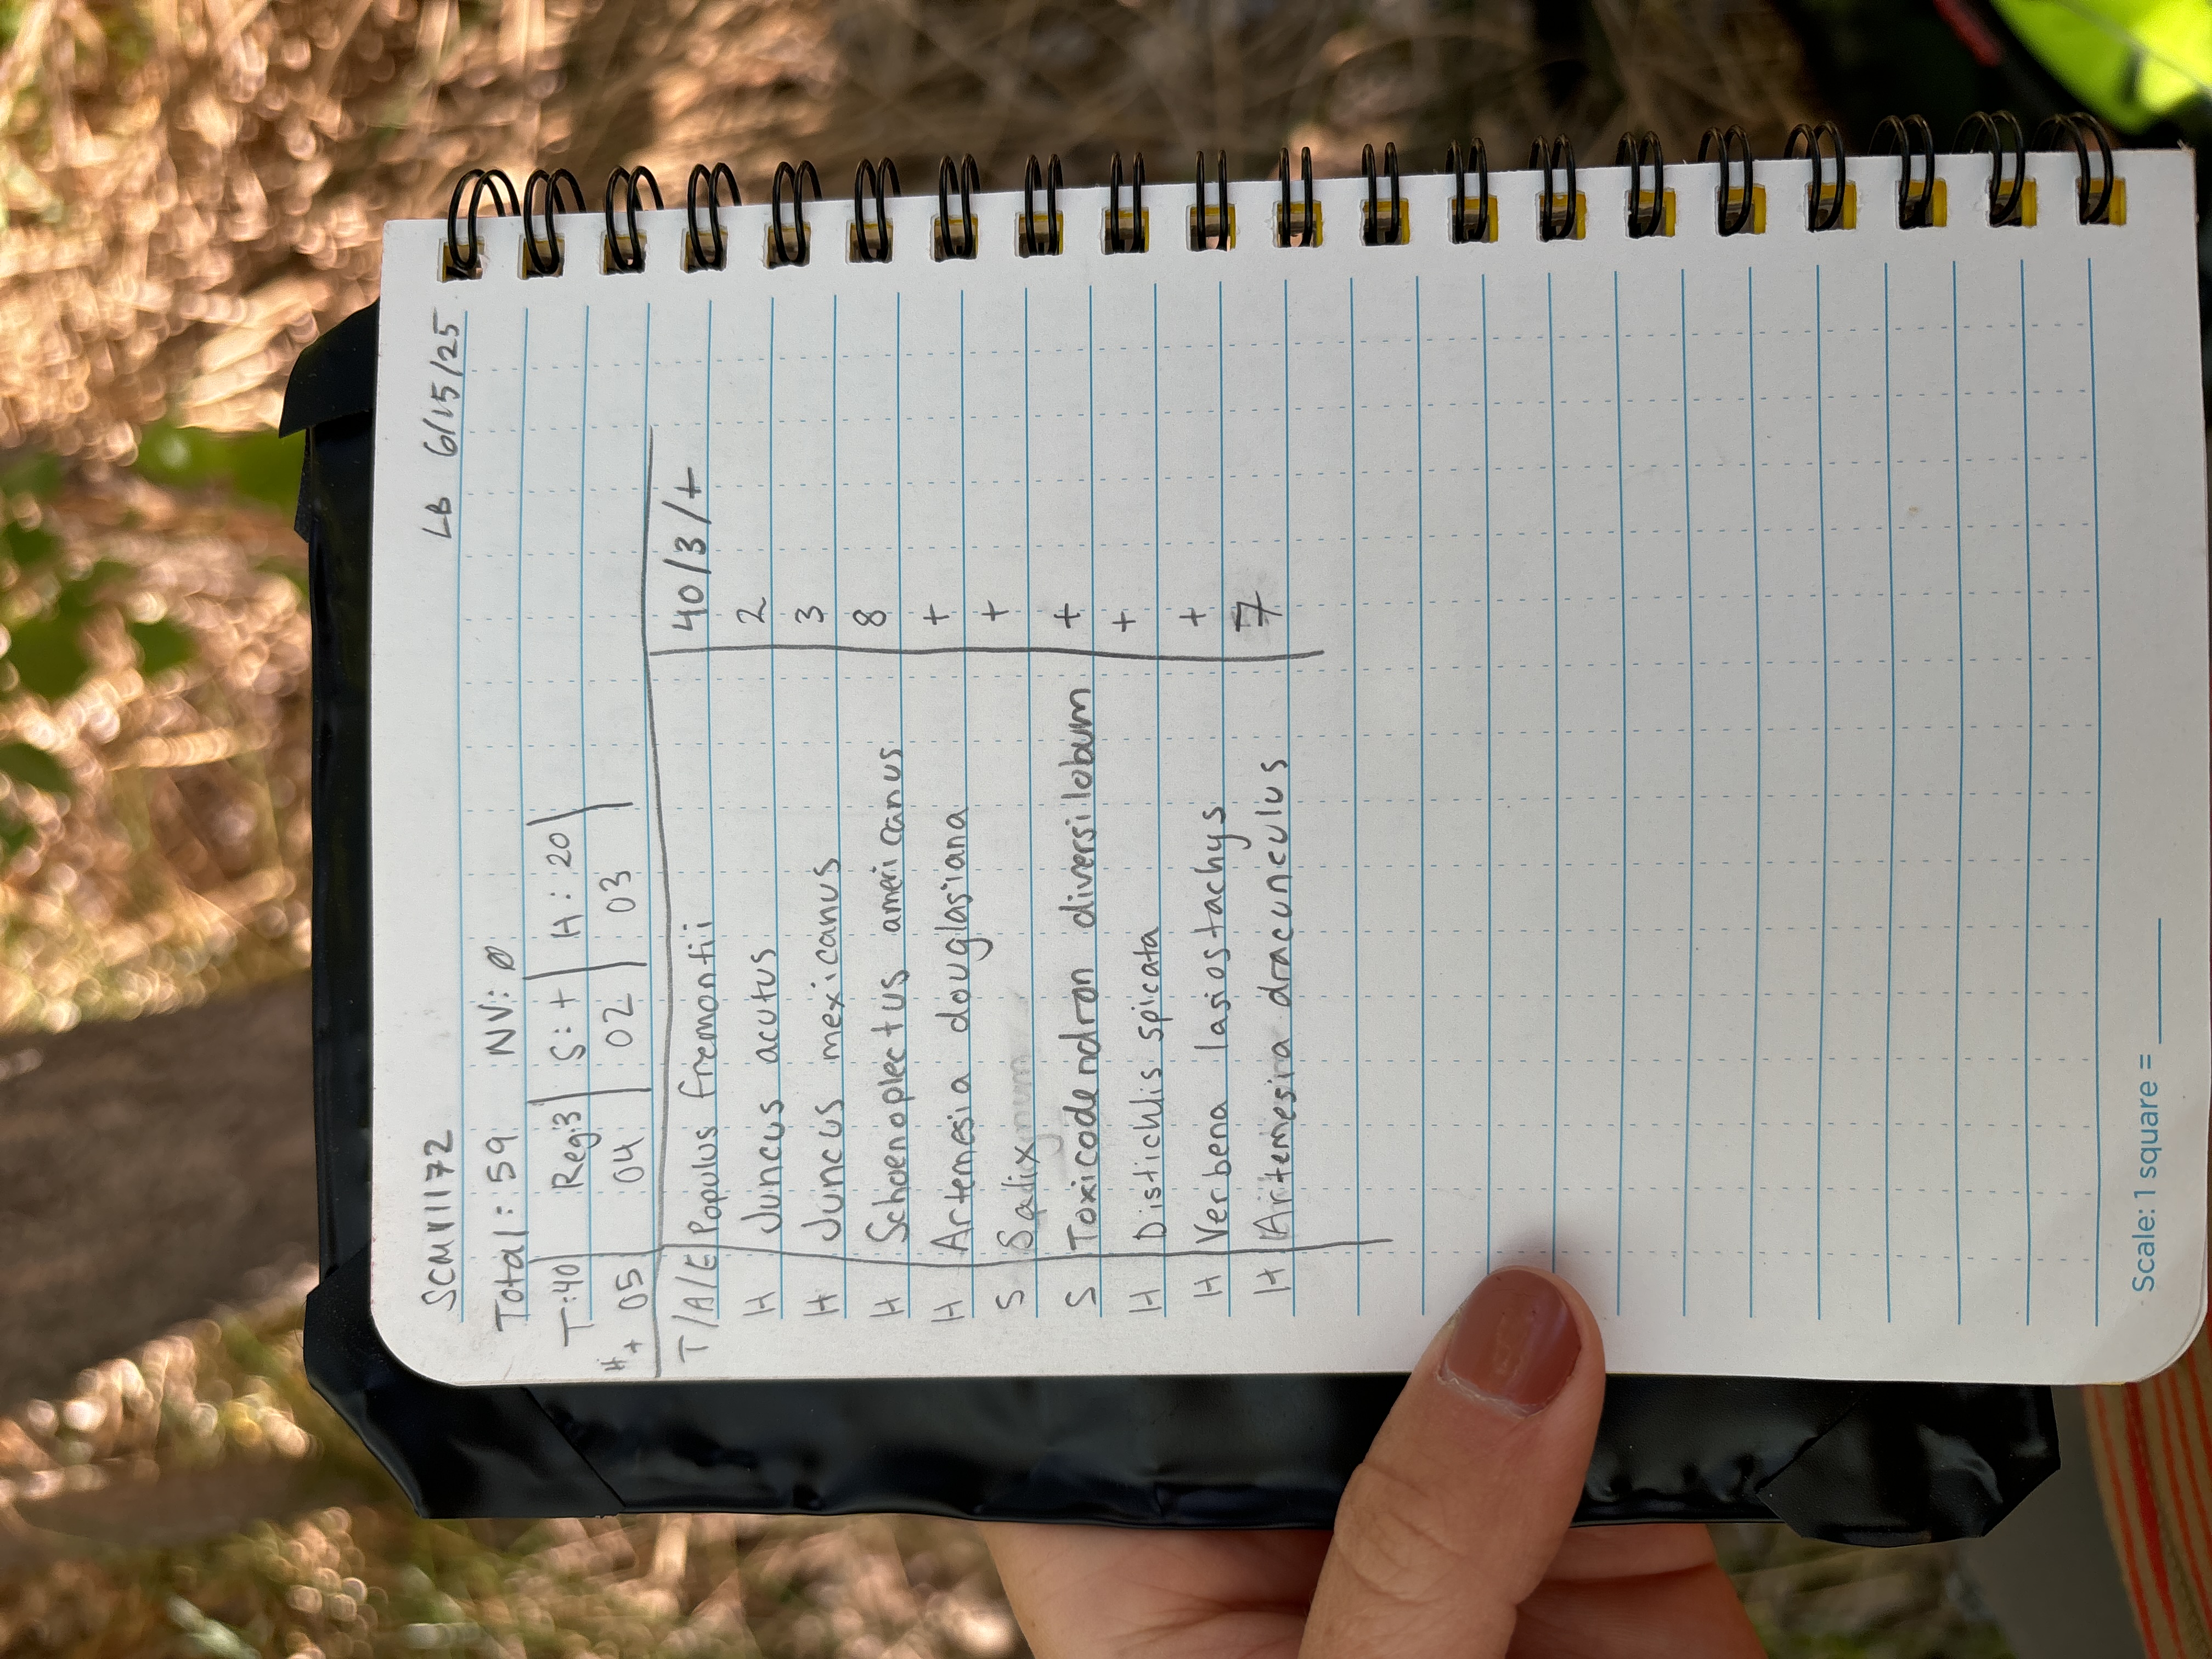 SCMV1172 LB 6/15/25
Total: 59 NV: Ø
T:40 Reg:3 S:+ H:20
H+ 05 04 02 03
T/A/E Populus fremontii 40/3/+
H Juncus acutus 2
H Juncus mexicanus 3
H Schoenoplectus americanus 8
H Artemesia douglasiana +
S Salix +
S Toxicodendron diversilobum +
H Distichlis spicata +
H Verbena lasiostachys +
H Artemesia dracunculus 7
Scale: 1 square = ____